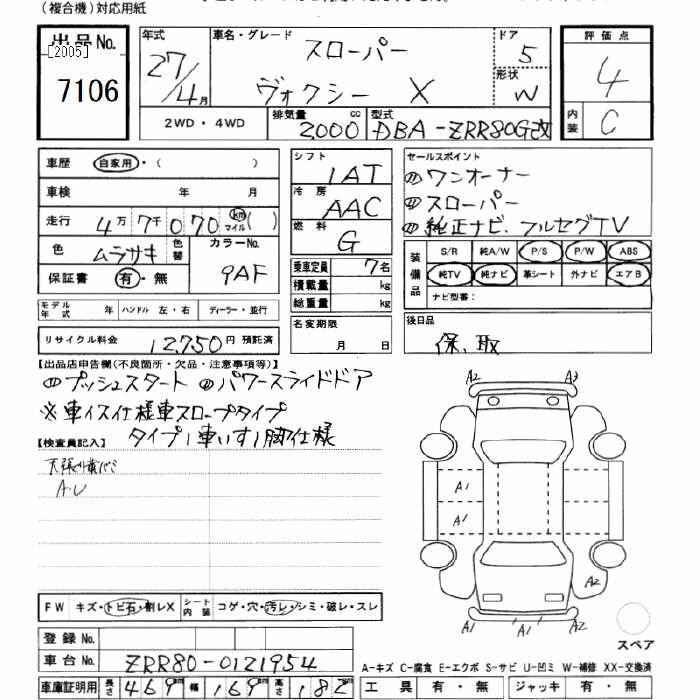 (複合機)対応用紙
出品No.
[2005]
7106
年式 27/4月
車名・グレード スローパー
ヴォクシー X
ドア 5
形状 W
評価点 4
内装 C
2WD・4WD
排気量 2000 cc
型式 DBA-ZRR80G改
車歴 自家用・( )
車検 年 月
走行 4万7千070 km マイル ( )
色 ムラサキ 色替
カラーNo. 9AF
保証書 有・無
シフト IAT
冷房 AAC
燃料 G
乗車定員 7名
積載量 kg
総重量 kg
セールスポイント
ワンオーナー
スローパー
純正ナビ、フルセグTV
装備品
S/R 純A/W P/S P/W ABS
純TV 純ナビ 革シート 外ナビ エアB
ナビ型番:
モデル年式 年 ハンドル 左・右 ディーラー・並行
リサイクル料金 12,750 円 預託済
名変期限
月 日
後日品
保、取
【出品店申告欄(不良箇所・欠品・注意事項等)】
プッシュスタート パワースライドドア
※車イス仕様車スロープタイプ
タイプ1車いす1脚仕様
【検査員記入】
A.U
A2 A3
A1
A1
A2
A1 A1 A2
スペア
FW キズ・トビ石・割レX シート内装 コゲ・穴・汚レ・シミ・破レ・スレ
登録No.
車台No. ZRR80-0121954
A-キズ C-腐食 E-エクボ S-サビ U-凹ミ W-補修 XX-交換済
車庫証明用 長さ 469 幅 169 高さ 182 cm
工具 有・無 ジャッキ 有・無